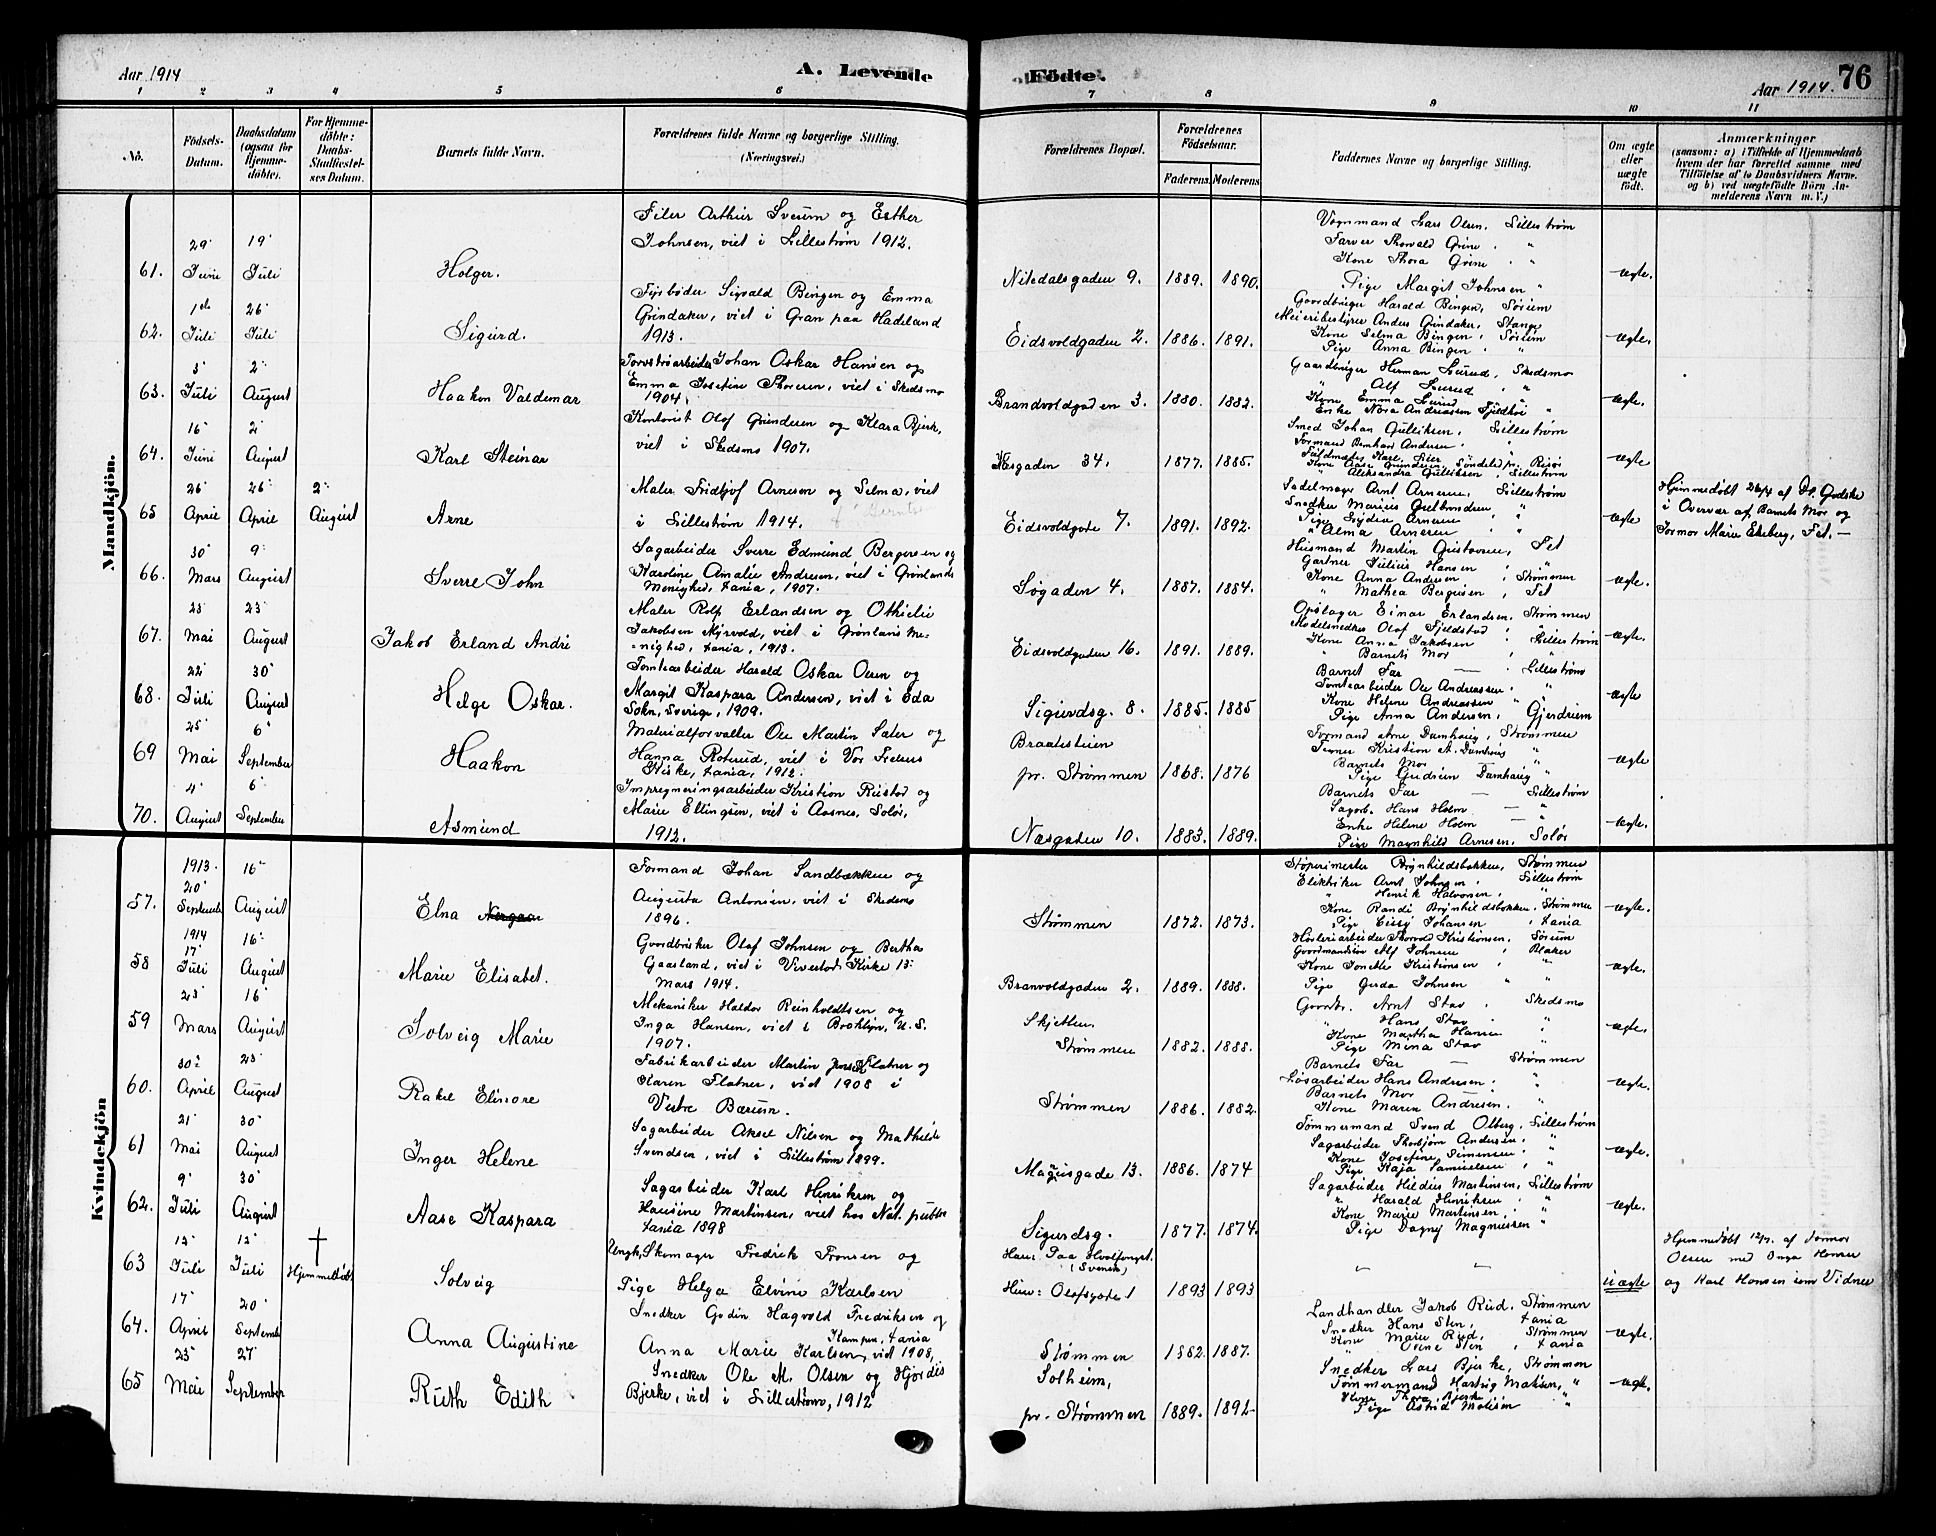 Aar 1914
A. Levende
Födte.
Aar 1914.
76
1 2 3 4 5 6 7 8 9 10 11
No.
Födsels-
Datum.
Daabsdatum
(ogsaa for
Hjemme-
döbte).
For Hjemme-
döbte:
Daabs-
Stadfæstel-
ses Datum.
Barnets fulde Navn.
Forældrenes fulde Navne og borgerlige Stilling.
(Næringsvei.)
Forældrenes Bopæl.
Forældrenes
Födselsaar.
Faderens Moderens
Faddernes Navne og borgerlige Stilling.
Om ægte
eller
uægte
födt.
Anmærkninger
(saasom: a) i Tilfælde af Hjemmedaab
hvem der har forrettet samme med
Tilföielse af to Daabsvidners Navne.
og b) ved uægtefödte Börn An-
melderens Navn m. V.)
Mandkjön.
61. 29 Juni 19 Juli Holger.
Filer Arthur Sverum og Esther
Johnsen, viet i Lillestrøm 1912.
Nitedalsgaden 9. 1889. 1890.
Vognmand Lars Olsen, Lillestrøm
Farver Thorvald Grine "
Kone Thora Grine "
Pige Margit Johnsen "
ægte.
62. 1ste Juli 26 Juli Sigurd.
Fyrbøder Sigvald Bingen og Emma
Grindaker, viet i Gran paa Hadeland
1913.
Eidsvoldgaden 2. 1886. 1891.
Gaardbruger Harald Bingen, Sørum
Meieribestyrer Anders Grindaker, Stange
Kone Selma Bingen, Sørum
Pige Anna Bingen "
ægte.
63. 3 Juli 2 August Haakon Valdemar
Johan Oskar Hansen og
Emma Josefine Thoresen, viet i Skedsmo
1904.
Brandvoldgaden 3. 1880. 1882.
Gaardbruger Herman Lurud, Skedsmo
" Alf Lurud "
Kone Emma Lurud "
Enke Nora Andreassen "
ægte.
64. 16 Juni 2 August Karl Steinar
Kontorist Olof Gundersen og Klara Bjerk,
viet i Skedsmo 1907.
Næsgaden 34. 1877. 1885.
Smed Johan Gulliksen, Lillestrøm
Formand Bernhard Andersen "
Aleksandra Gulliksen, Lillestrøm
ægte
65 26 April 26 April 2 August Arne
Maler Fridtjof Arnesen og Selma, viet
i Lillestrøm 1914.
Eidsvoldgade 7. 1891. 1892.
Sadelmager Arnt Arnesen, Lillestrøm
Snedker Marius Gulbrandsen, "
Pige Lydia Arnesen "
" Alma Arnesen "
ægte
Hjemmedøbt 26/4 af Hr. Godske
i Overvær af Barnets Mor og
Formor Marie Ekeberg, Fet. —
66. 30 Mars 9 August Sverre John
Sagarbeider Sverre Edmund Bergersen og
Karoline Amalie Andresen, viet i Grønlands
Menighed, Xania, 1907.
Søgaden 4. 1887. 1884.
Husmand Martin Gustavsen, Fet
Gartner Julius Hansen, "
Kone Anna Andresen, Strømmen
" Mathea Bergersen, Fet
ægte.
67. 23 Mai 23 August Jakob Erland Andri
Maler Rolf Erlandsen og Othielie
Jakobsen Myrvold, viet i Grønlans Me-
nighed, Xania, 1913.
Eidsvoldgaden 16. 1891. 1889.
Opslager Einar Erlandsen, Strømmen
Modelsnedker Olof Fjeldstad, "
Kone Anna Jakobsen, Lillestrøm
" Barnets Mor "
ægte
68. 22 Juli 30 August Helge Oskar.
Tomtearbeider Harald Oskar Olsen og
Margit Kaspara Andersen, viet i Eda
Sokn, Sverige, 1909.
Sigurdsg. 8. 1885. 1885
Barnets Far — Lillestrøm
Tomtearbeider Ole Andreassen, "
Kone Helene Andreassen "
Pige Anna Andersen, Gjerdrum
ægte
69 25 Mai 6 September Haakon
Materialforvalter Ole Martin Sater og
Hanna Roterud, viet i Vor Frelsers
Kirke, Xania, 1912.
Braatestuen
pr. Strømmen 1868. 1876
Formand Arne Damhaug, Strømmen
Kristian A. Damhaug "
Barnets Mor "
Pige Gudrun Damhaug "
ægte
70. 4 August 6 September Asmund
Impregneringsarbeider Kristian Rustad og
Marie Ellingsen, viet i Aasnes, Solør,
1912.
Næsgaden 10. 1883. 1889.
Barnets Far — Lillestrøm
Sagarb. Hans Holm — "
Enke Helene Holm — "
Pige Magnhild Arnesen, Solør
ægte.
Kvindekjön
57. 1913. 20 September 16 August Elna
Formand Johan Sandbækken og
Augusta Antonsen, viet i Skedsmo
1896.
Strømmen 1872. 1873.
Støperimester Brynhildsbakken, Strømmen
Elektriker Arnt Johnsen, Lillestrøm
" Henrik Halvorsen, "
Kone Randi Brynhildsbakken, Strømmen
Pige Cissy Johansen, Xania
ægte.
58 1914 17 Juli 16 August Marie Elisabet.
Gaardbruker Olaf Johnsen og Bertha
Gaasland, viet i Vivestad Kirke 15
Mars 1914.
Branvoldgaden 2. 1889. 1888.
Thorvald Kristiansen, Sørum
Alf Johnsen, Blaker
Kone Jonette Kristiansen, "
Pige Gerda Johnsen " "
ægte.
59 23 Mars 16 August Solveig Marie
Mekaniker Haldor Reinholdtsen og
Inga Hansen, viet i Broklyn, U.S.
1907.
Skjetten
Strømmen 1882. 1888.
Gaardb. Arnt Stav, Skedsmo
" Hans Stav, "
Kone Martha Hansen "
Pige Mina Stav "
ægte
60. 30 April 23 August Rakel Elinore
Fabrikarbeider Martin Jensen Flatner og
Karen Flatner, viet 1908 i
Vestre Bærum.
Strømmen 1886. 1882.
Barnets Far — Strømmen
Løsarbeider Hans Andresen, "
Barnets Mor "
Kone Maren Andresen. "
ægte.
61 21 Mai 30 August Inger Helene
Sagarbeider Aksel Nilsen og Mathilde
Svendsen, viet i Lillestrøm 1899.
Magnusgade 13. 1886. 1874
Tømmermand Svend Olberg, Lillestrøm
Sagarbeider Thorbjørn Andersen, "
Kone Josefine Simensen, "
Pige Kaja Samuelsen, "
ægte.
62. 9 Juli 30 August Aase Kaspara
Sagarbeider Karl Henriksen og
Hansine Martinsen, viet hos Not. publ.
Xania 1898
Sigurdsg. 1877. 1874.
Sagarbeider Hildius Martinsen, Lillestrøm
" Harald Henriksen "
Kone Marie Martinsen, "
Pige Dagny Magnussen "
ægte.
63 12 Juli 12 Juli † Hjemmedøbt Solveig
Ungk. Skomager Fredrik Fransen og
Pige Helga Elvine Karlsen
(Svensk)
Hun: Olafsgade 1 1893 1893
" "
uægte
Hjemmedøbt 12/7. af Jormor
Olsen med Inga Hansen
og Karl Hansen som Vidner
64. 17 April 20 September Anna Augustine
Snedker Godin Hagvold Fredriksen og
Anna Marie Karlsen, viet 1908,
Kampen, Xania
Strømmen 1882. 1887.
Landhandler Jakob Rud, Strømmen
Snedker Hans Sten, Xania
Kone Marie Rud, Strømmen
" Sten, Xania
ægte.
65 23 Mai 27 September Ruth Edith
Snedker Ole M. Olsen og Hjørdis
Bjerke, viet i Lillestrøm, 1912
Solheim,
pr. Strømmen 1889. 1892
Snedker Lars Bjerke, Strømmen
Tømmermand Hartvig Matisen, "
Kone Thora Bjerke "
Pige Astrid Matisen "
ægte.